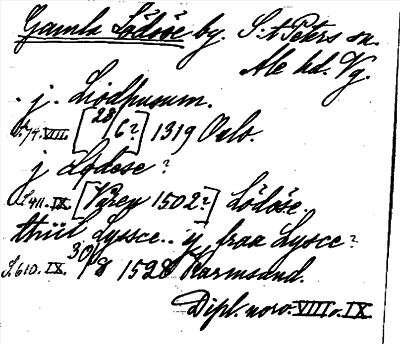 Gamla Lödöse by. S:t Peters sn.
Ale hd. Vg.
j. Liodhusum.
S. 74. VIII. [28/6?] 1319 Oslo.
j Lydose?
S. 411. IX. [Våren 1502?] Lödöse.
thiil Lyssce.. y fraa Lysce?
S. 610. IX. 30/8 1528 Karmsund.
Dipl. norv. VIII o. IX.